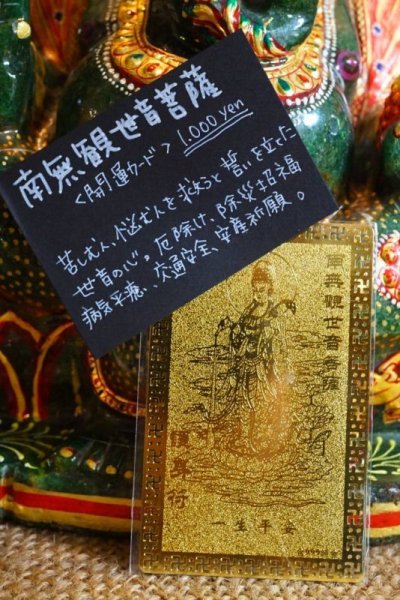 南無観世音菩薩
<開運カード> 1.000 yen
苦しむ人、悩む人を救おうと誓いを立てた
世音の心。厄除け、除災招福
病気平癒、交通安全、安産祈願。
南無觀世音菩薩
一生平安